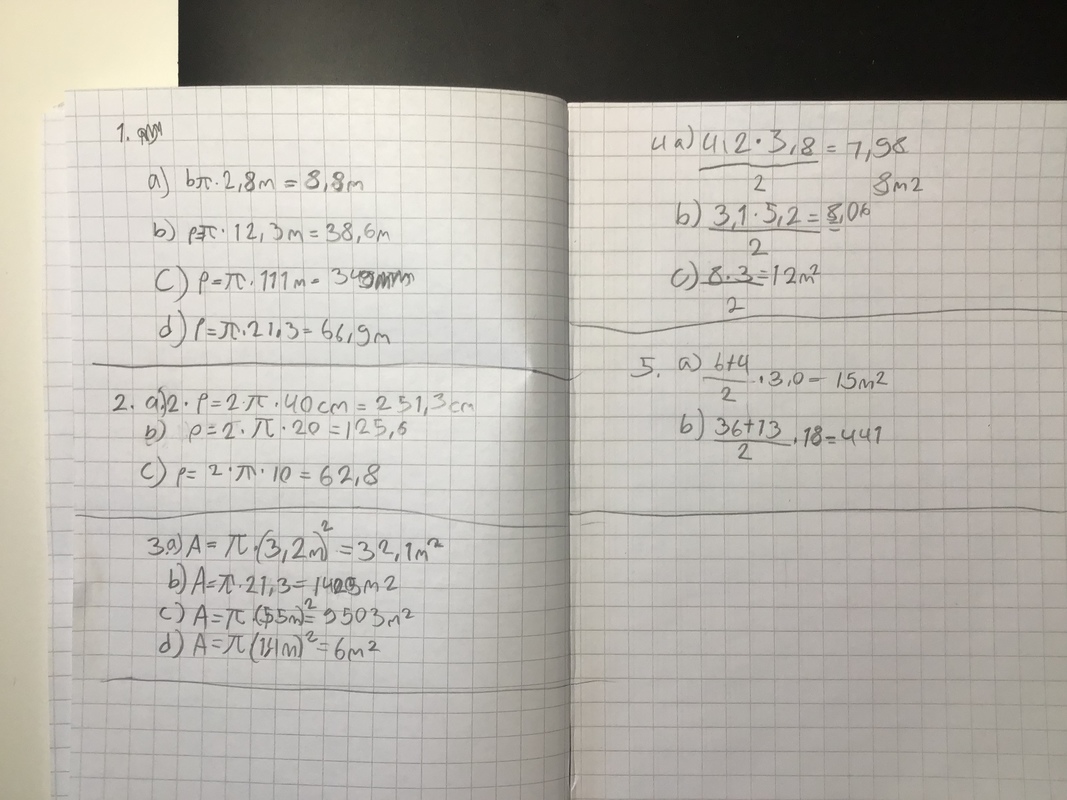 1.
a) bπ·2,8m = 8,8m
b) p=π·12,3m=38,6m
c) p=π·111m=
d) p=π·21,3=66,9m
2. a) 2·p=2·π·40cm=251,3cm
b) p=2·π·20=125,6
c) p=2·π·10=62,8
3.a) A=π·(3,2m)²=32,1m²
b) A=π·21,3= m2
c) A=π·(55m)²=9503m²
d) A=π(1,4m)²=6m²
4a) 4,2·3,8 = 7,98
2
8m2
b) 3,1·5,2=8,06
2
c) 8·3=12m²
2
5. a) 6+4
2 ·3,0=15m²
b) 36+13
2 ·18=441